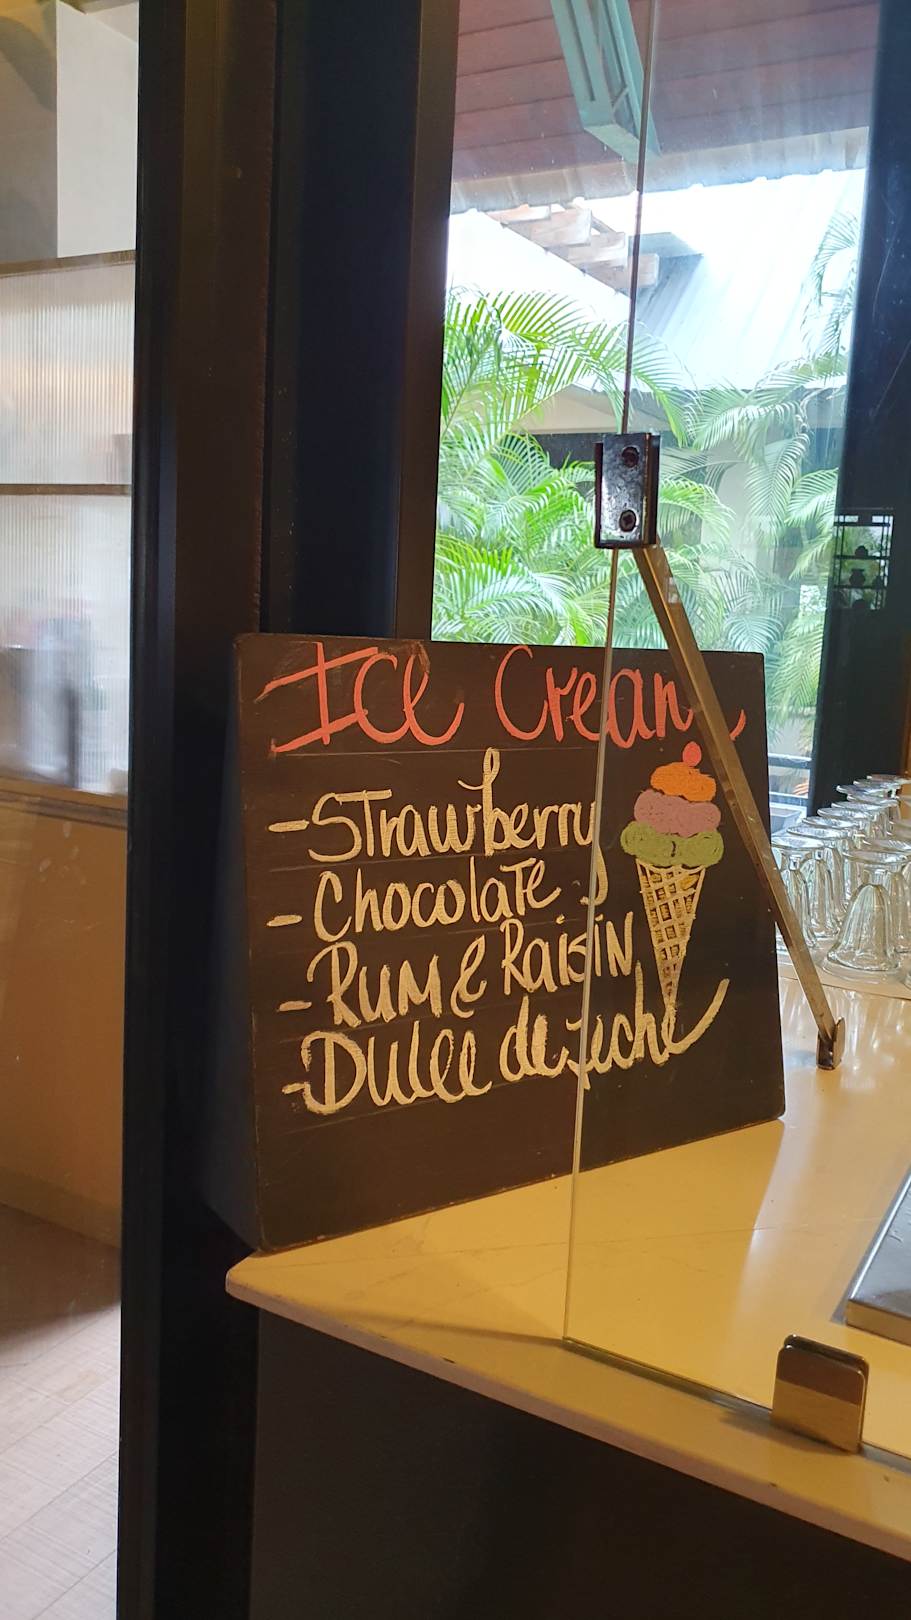 Ice Cream
-Strawberry
-Chocolate
-Rum & Raisin
-Dulce de Leche